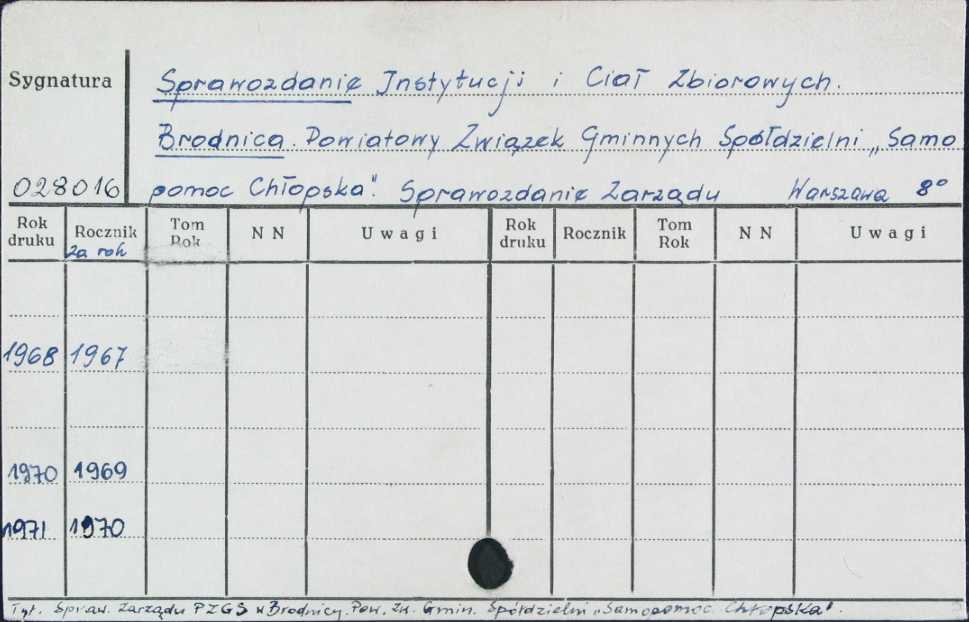 Sygnatura
Sprawozdanie Instytucji i Ciał Zbiorowych.
Brodnica. Powiatowy Związek Gminnych Spółdzielni „Samo
028016 pomoc Chłopska". Sprawozdanie Zarządu Warszawa 8°
Rok druku Rocznik Tom Rok N N Uwagi Rok druku Rocznik Tom Rok N N Uwagi
za rok
1968 1967
1970 1969
1971 1970
Tyt. Spraw. Zarządu PZGS w Brodnicy. Pow. Zw. Gmin. Spółdzielni „Samopomoc Chłopska".